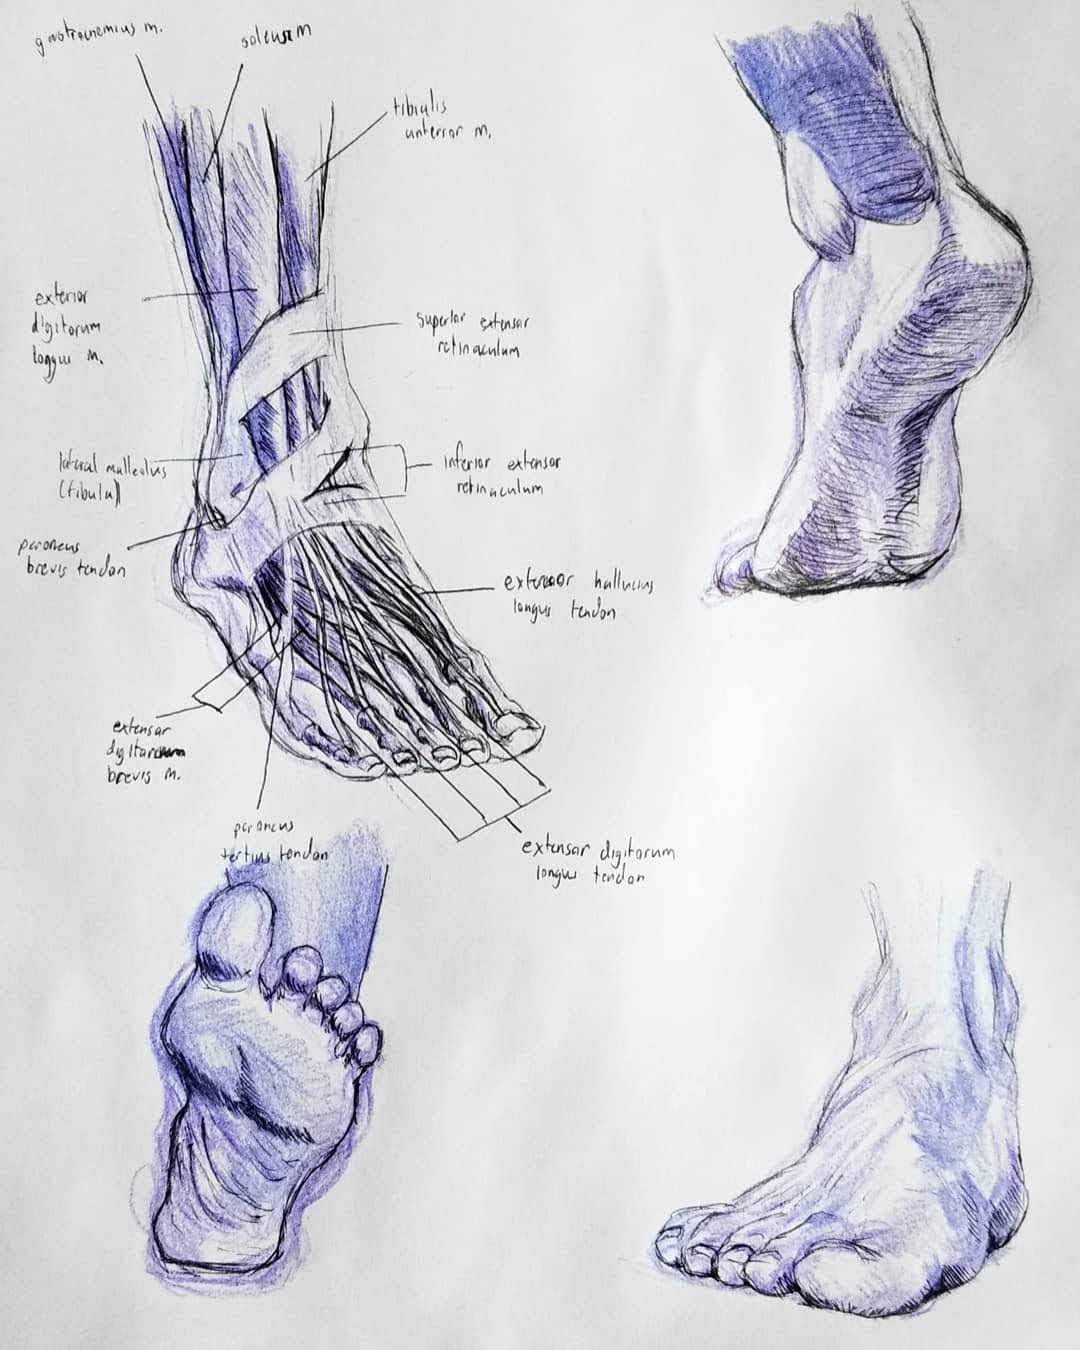 gastrocnemius m.
soleus m
tibialis
anterior m.
exterior
digitorum
longus m.
superior extensor
retinaculum
lateral malleolus
(fibula)
inferior extensor
retinaculum
peroneus
brevis tendon
extensor hallucius
longus tendon
extensor
digitorum
brevis m.
peroneus
tertius tendon
extensor digitorum
longus tendon